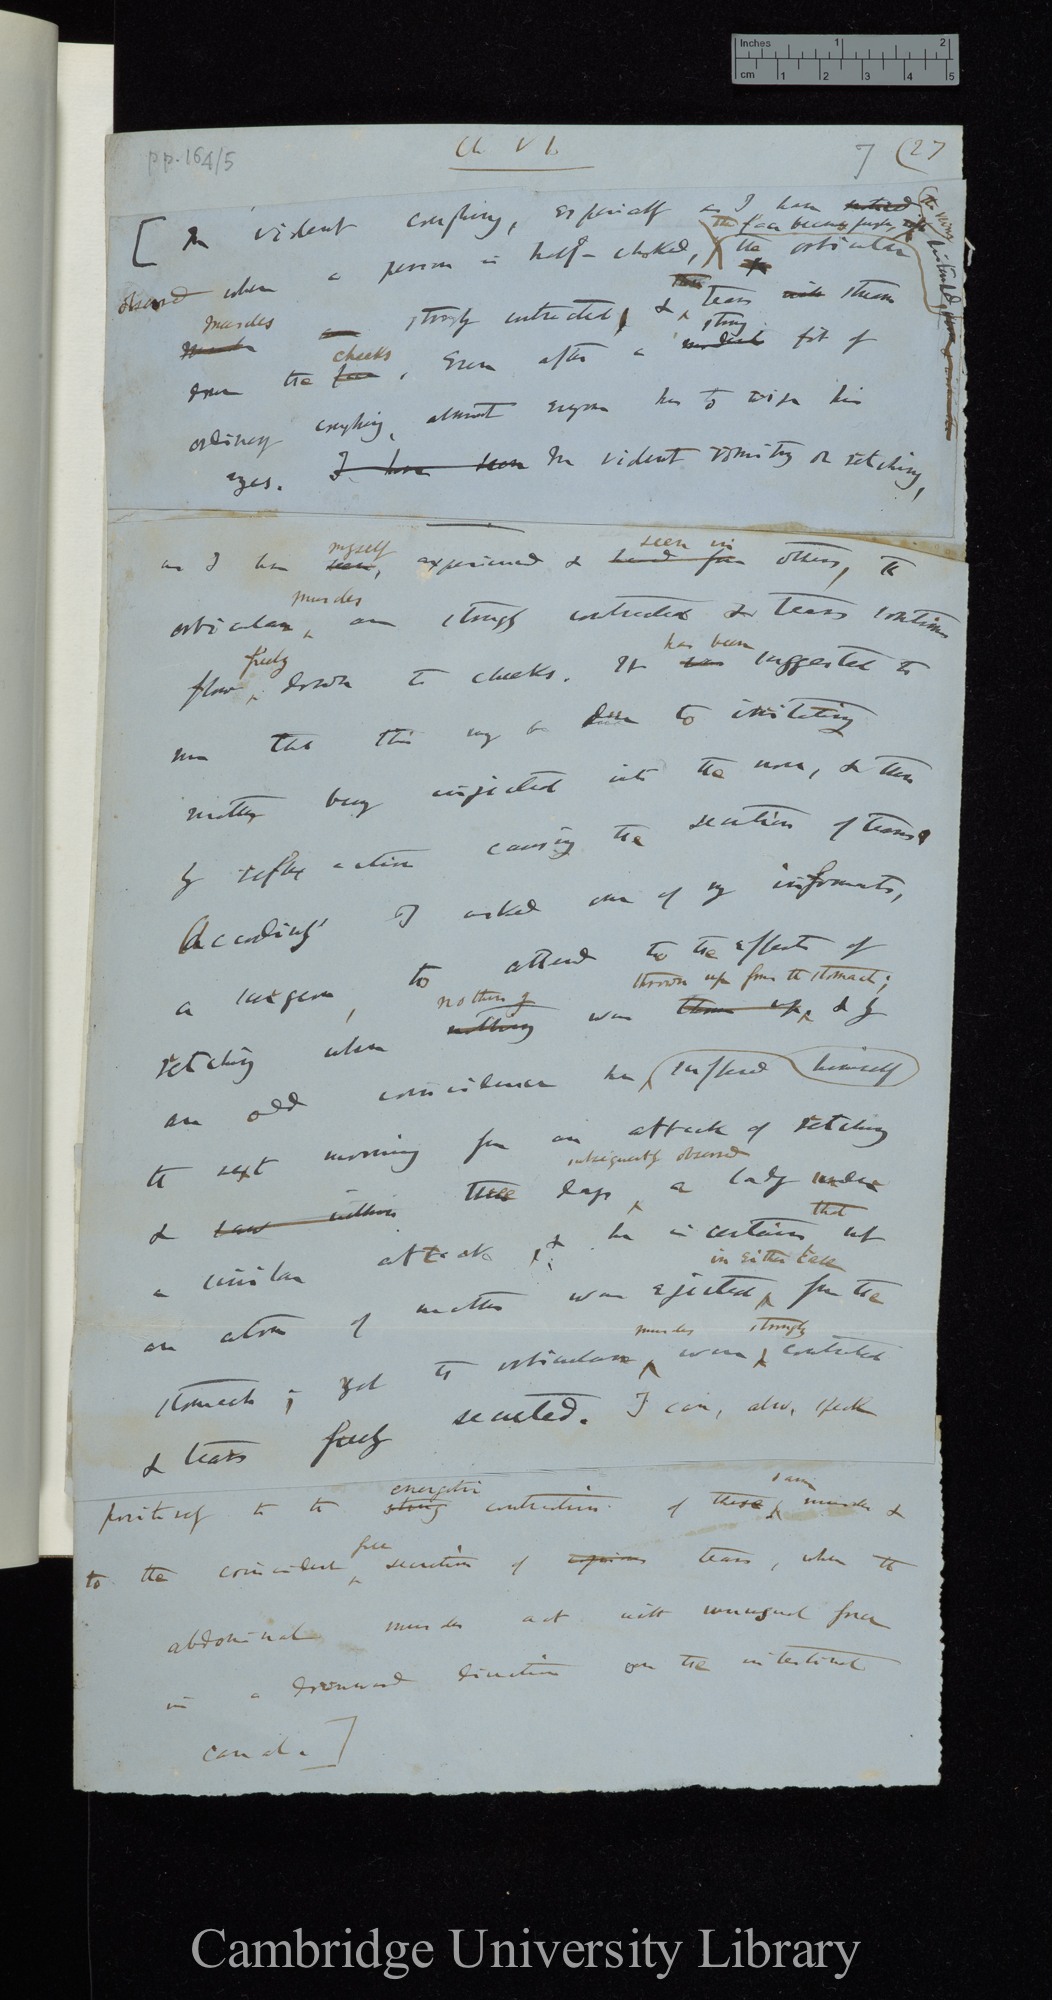 pp. 164/5
Ch VI
7 (27
Inches 1 2
cm 1 2 3 4 5
[In violent coughing, especially as I have noticed
observed when a person is half-choked, the face being purple, the veins distended, the orbicular
muscles are strongly contracted, & tears stream
down the face cheeks. Even after a violent strong fit of
ordinary coughing, almost everyone has to wipe his
eyes. I have seen In violent vomiting or retching,
as I have seen myself, experienced & heard from seen in others, the
orbicular muscles are strongly contracted & tears sometimes
flow freely down the cheeks. It was has been suggested to
me that this may be due to irritating
matter being injected into the nose, & then
by reflex action causing the secretion of tears.
Accordingly I asked one of my informants,
a surgeon, to attend to the effects of
retching when nothing nothing was thrown up thrown up from the stomach; & by
an odd coincidence he suffered himself
the next morning from an attack of retching
& saw within three days subsequently observed a lady under
a similar attack; & he is certain that not
an atom of matter was ejected in either case from the
stomach; yet the orbicular muscles were strongly contracted
& tears freely secreted. I can, also, speak
positively to the strong energetic contraction of these same muscles &
to the coincident free secretion of tears, when the
abdominal muscles act with unusual force
in a downward direction on the intestinal
canal.]
Cambridge University Library